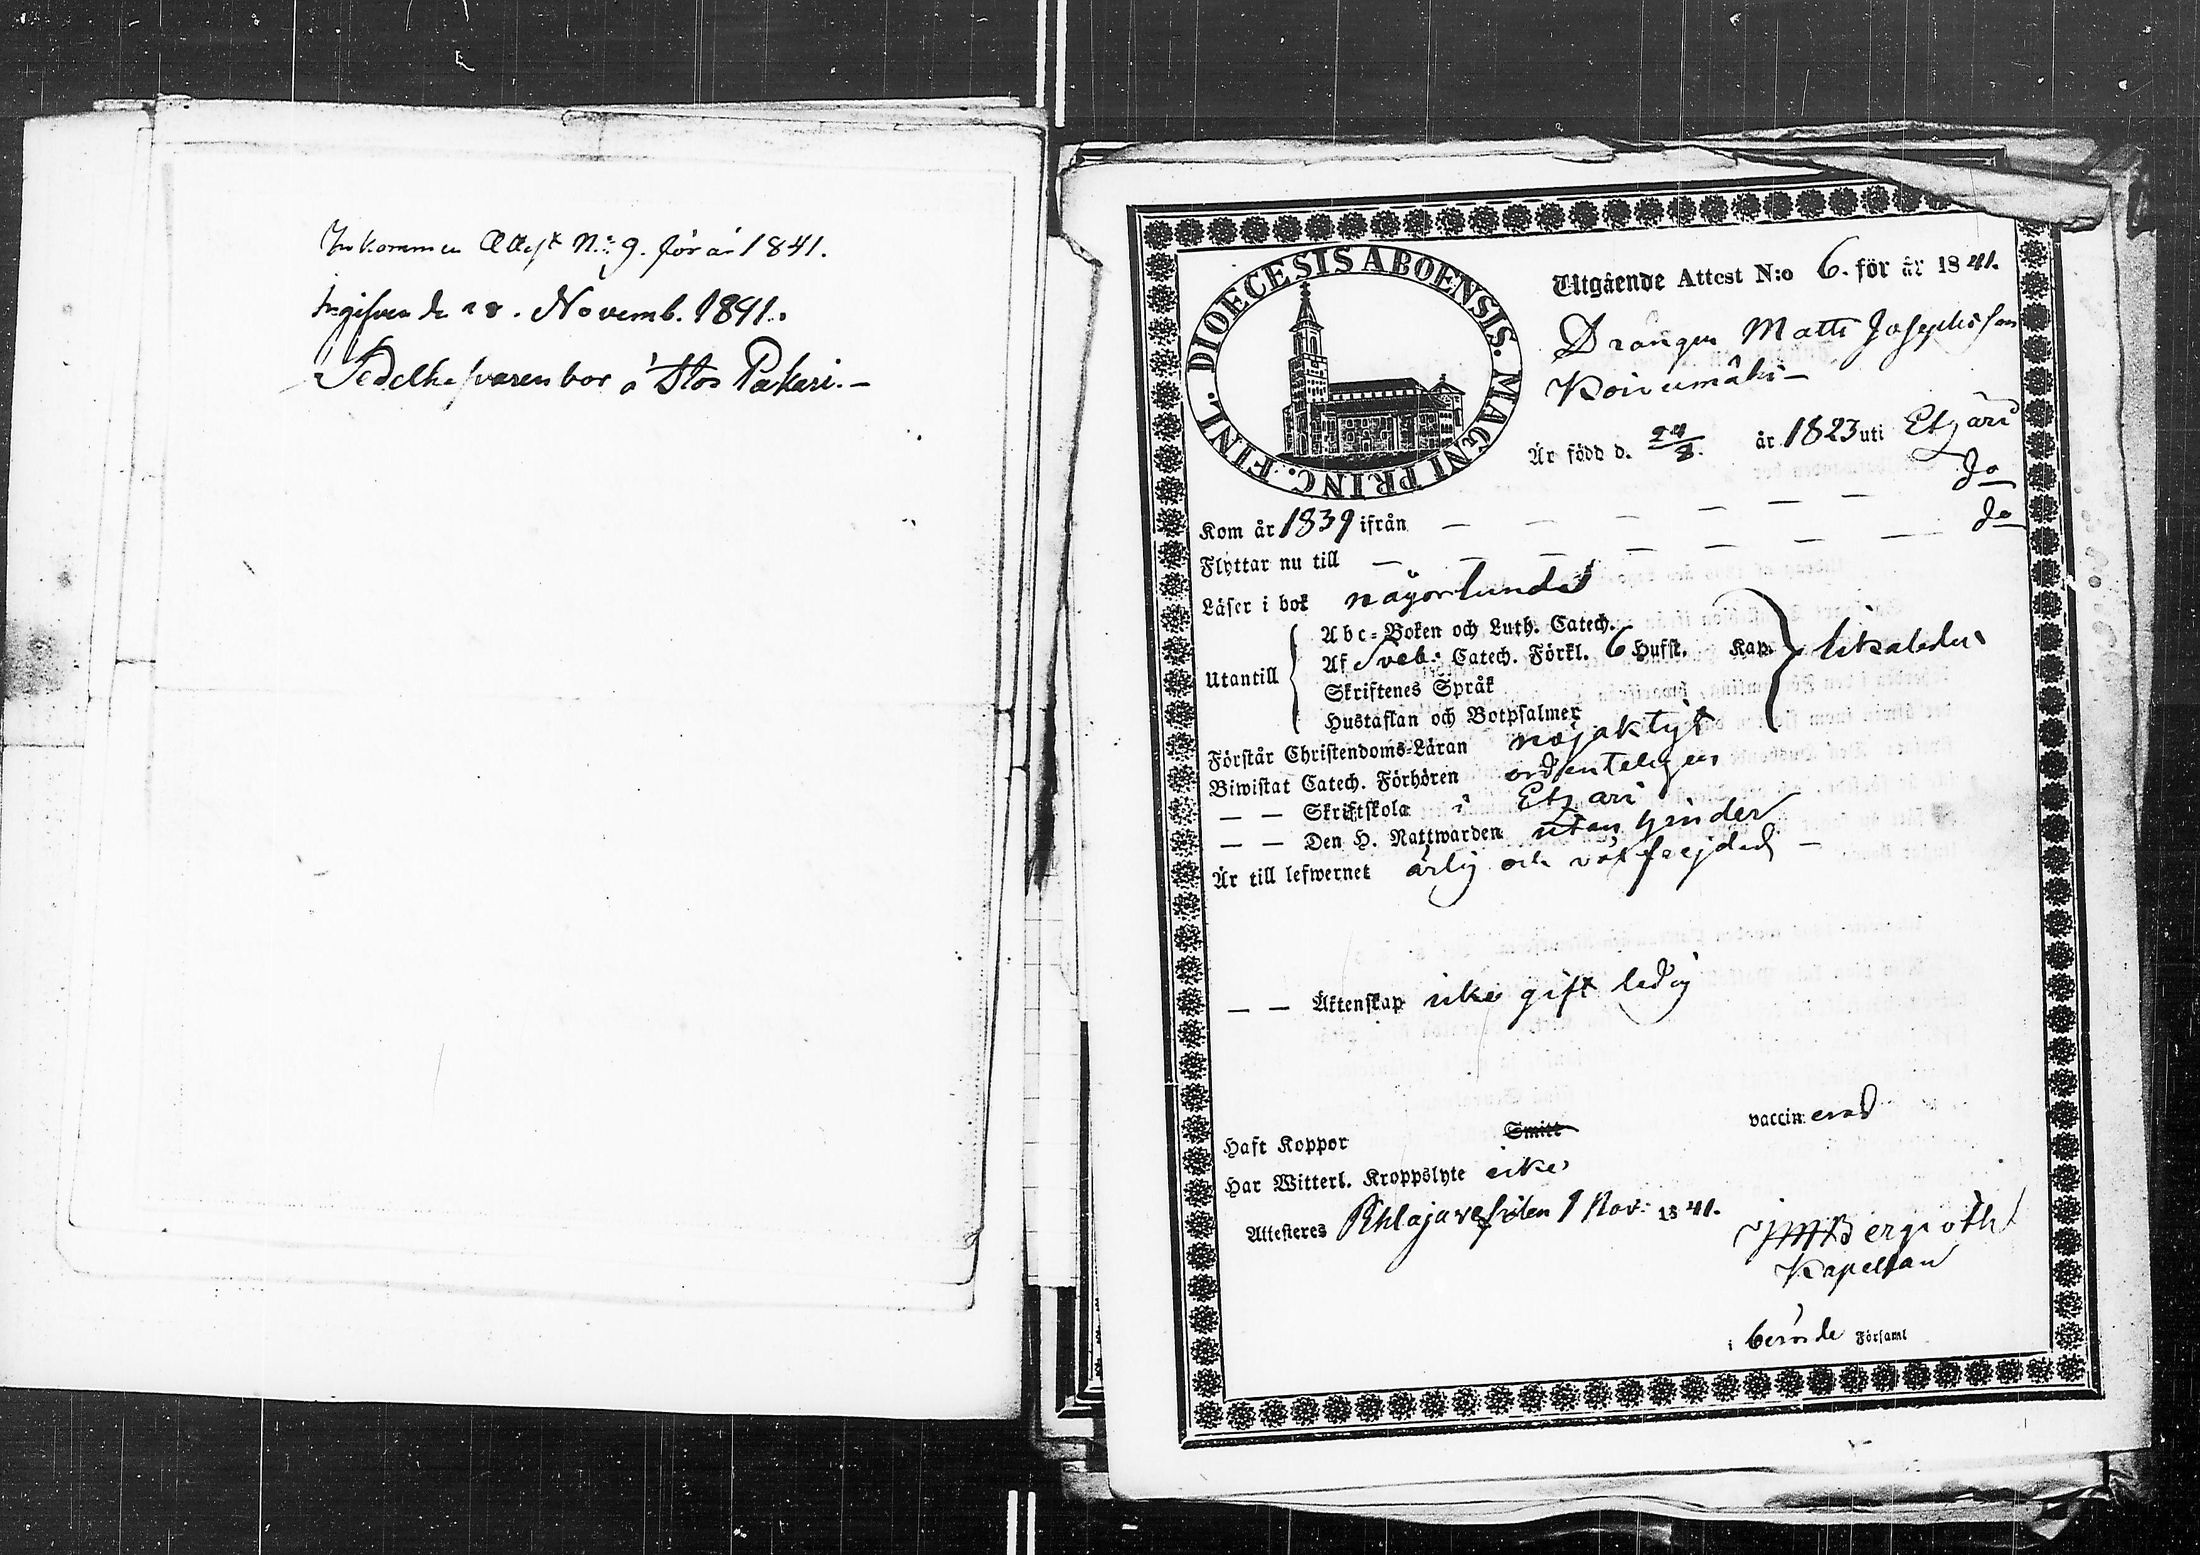 Inkommen Attest N:o 9. för år 1841.
Ingifven d. 28. Novemb. 1841.
Sedelhafvaren bor å Stor Pakari. —
DIOECESIS ABOENSIS. MAGNI PRINC. FINL.
Utgående Attest N:o 6. för år 1841.
Drängen Matts Josephsson
Koivumäki —
Är född d. 24/8. år 1823 uti Etzäri
Kom år 1839 ifrån — — — — — — do
Flyttar nu till — — — — — — — do
Läser i bok någorlunda
Utantill
Abc-Boken och Luth. Catech.
Af Sveb. Catech. Förkl. 6 Hufst. Kap. likaledes
Skriftenes Språk
Hustaflan och Botpsalmer
Förstår Christendoms-Läran nöjaktigt
Biwistat Catech. Förhören ordenteligen
— — Skriftskola i Etzäri
— — Den H. Nattwarden utan hinder
Är till lefwernet ärlig och välfrejdad —
— — Äktenskap icke gift ledig
Haft Koppor Smitt vaccinerad
Har Witterl. Kroppslyte icke
Attesteras Pihlajavesi den 1 Nov. 1841.
Bergroth
Kapellan
i berörde Församl